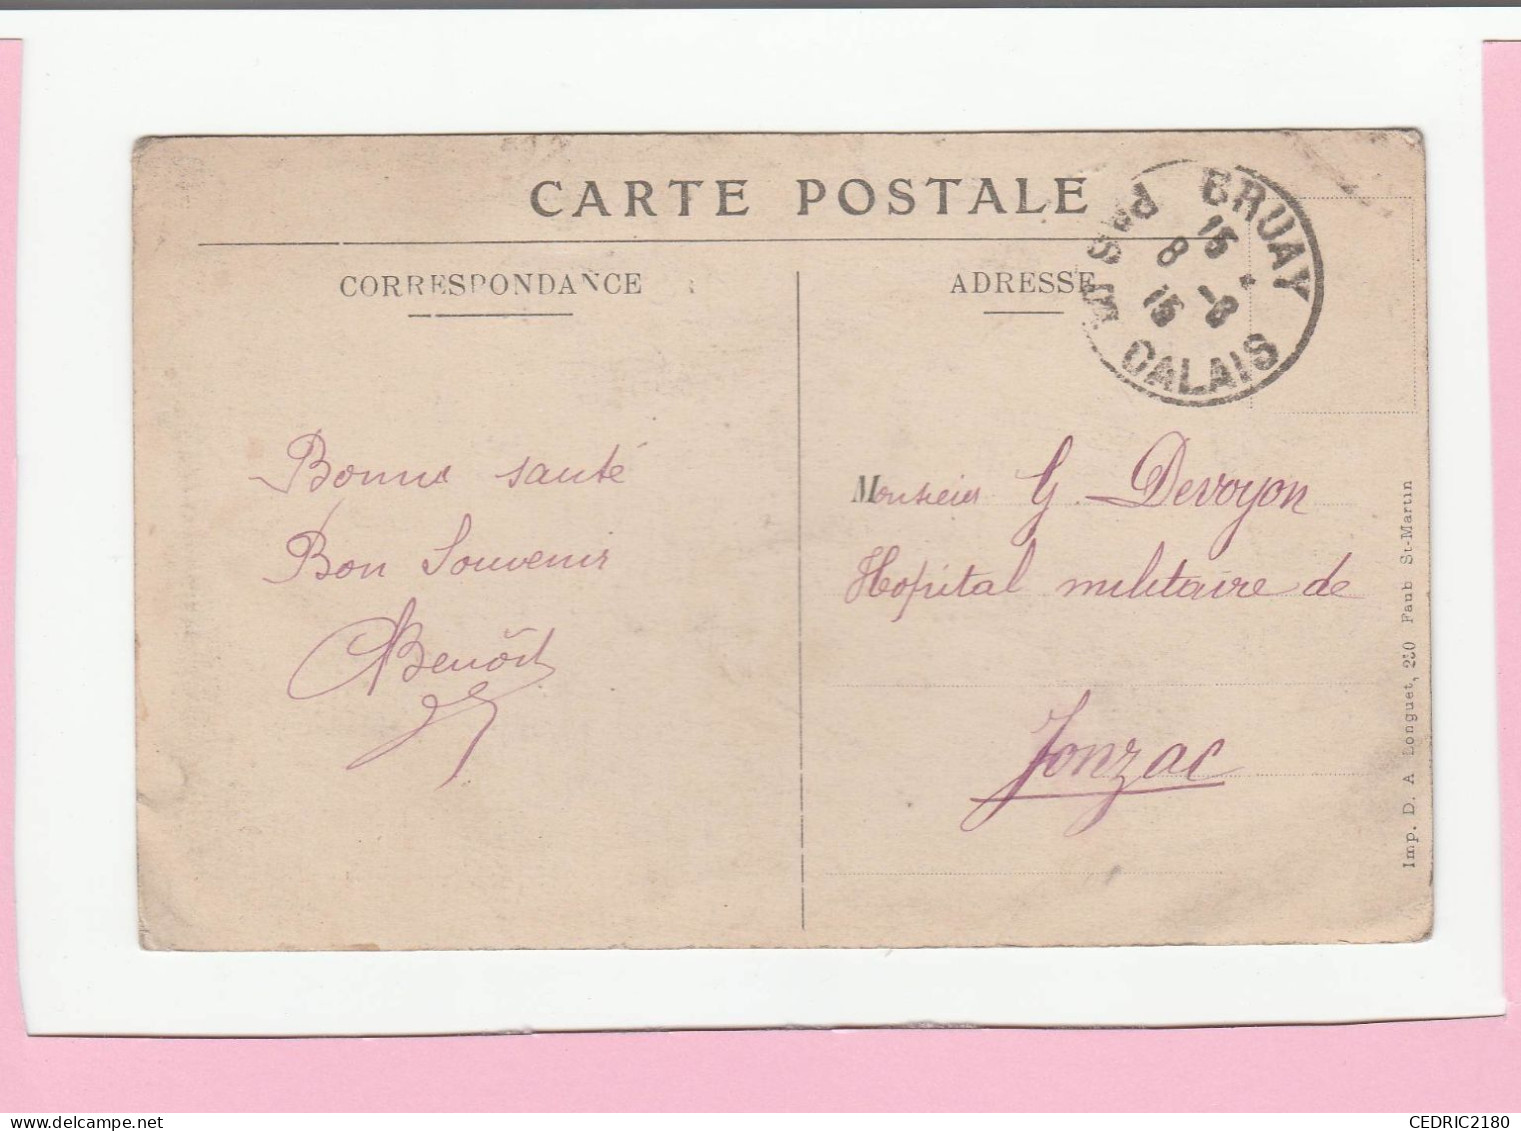 CARTE POSTALE
CORRESPONDANCE
ADRESSE
BRUAY
PAS DE CALAIS
15
8 -8
15
Bonne santé
Bon Souvenir
Benoît
Monsieur G. Devoyon
Hopital militaire de
Jonzac
Imp. D. A Longuet, 250 Faub St-Martin
CEDRIC2180